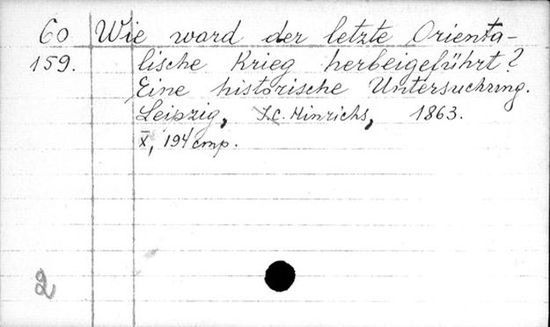 60 Wie ward der letzte Orienta-
159. lische Krieg herbeigeführt?
Eine historische Untersuchung.
Leipzig, J.C. Hinrichs, 1863.
X, 194 стр.
2